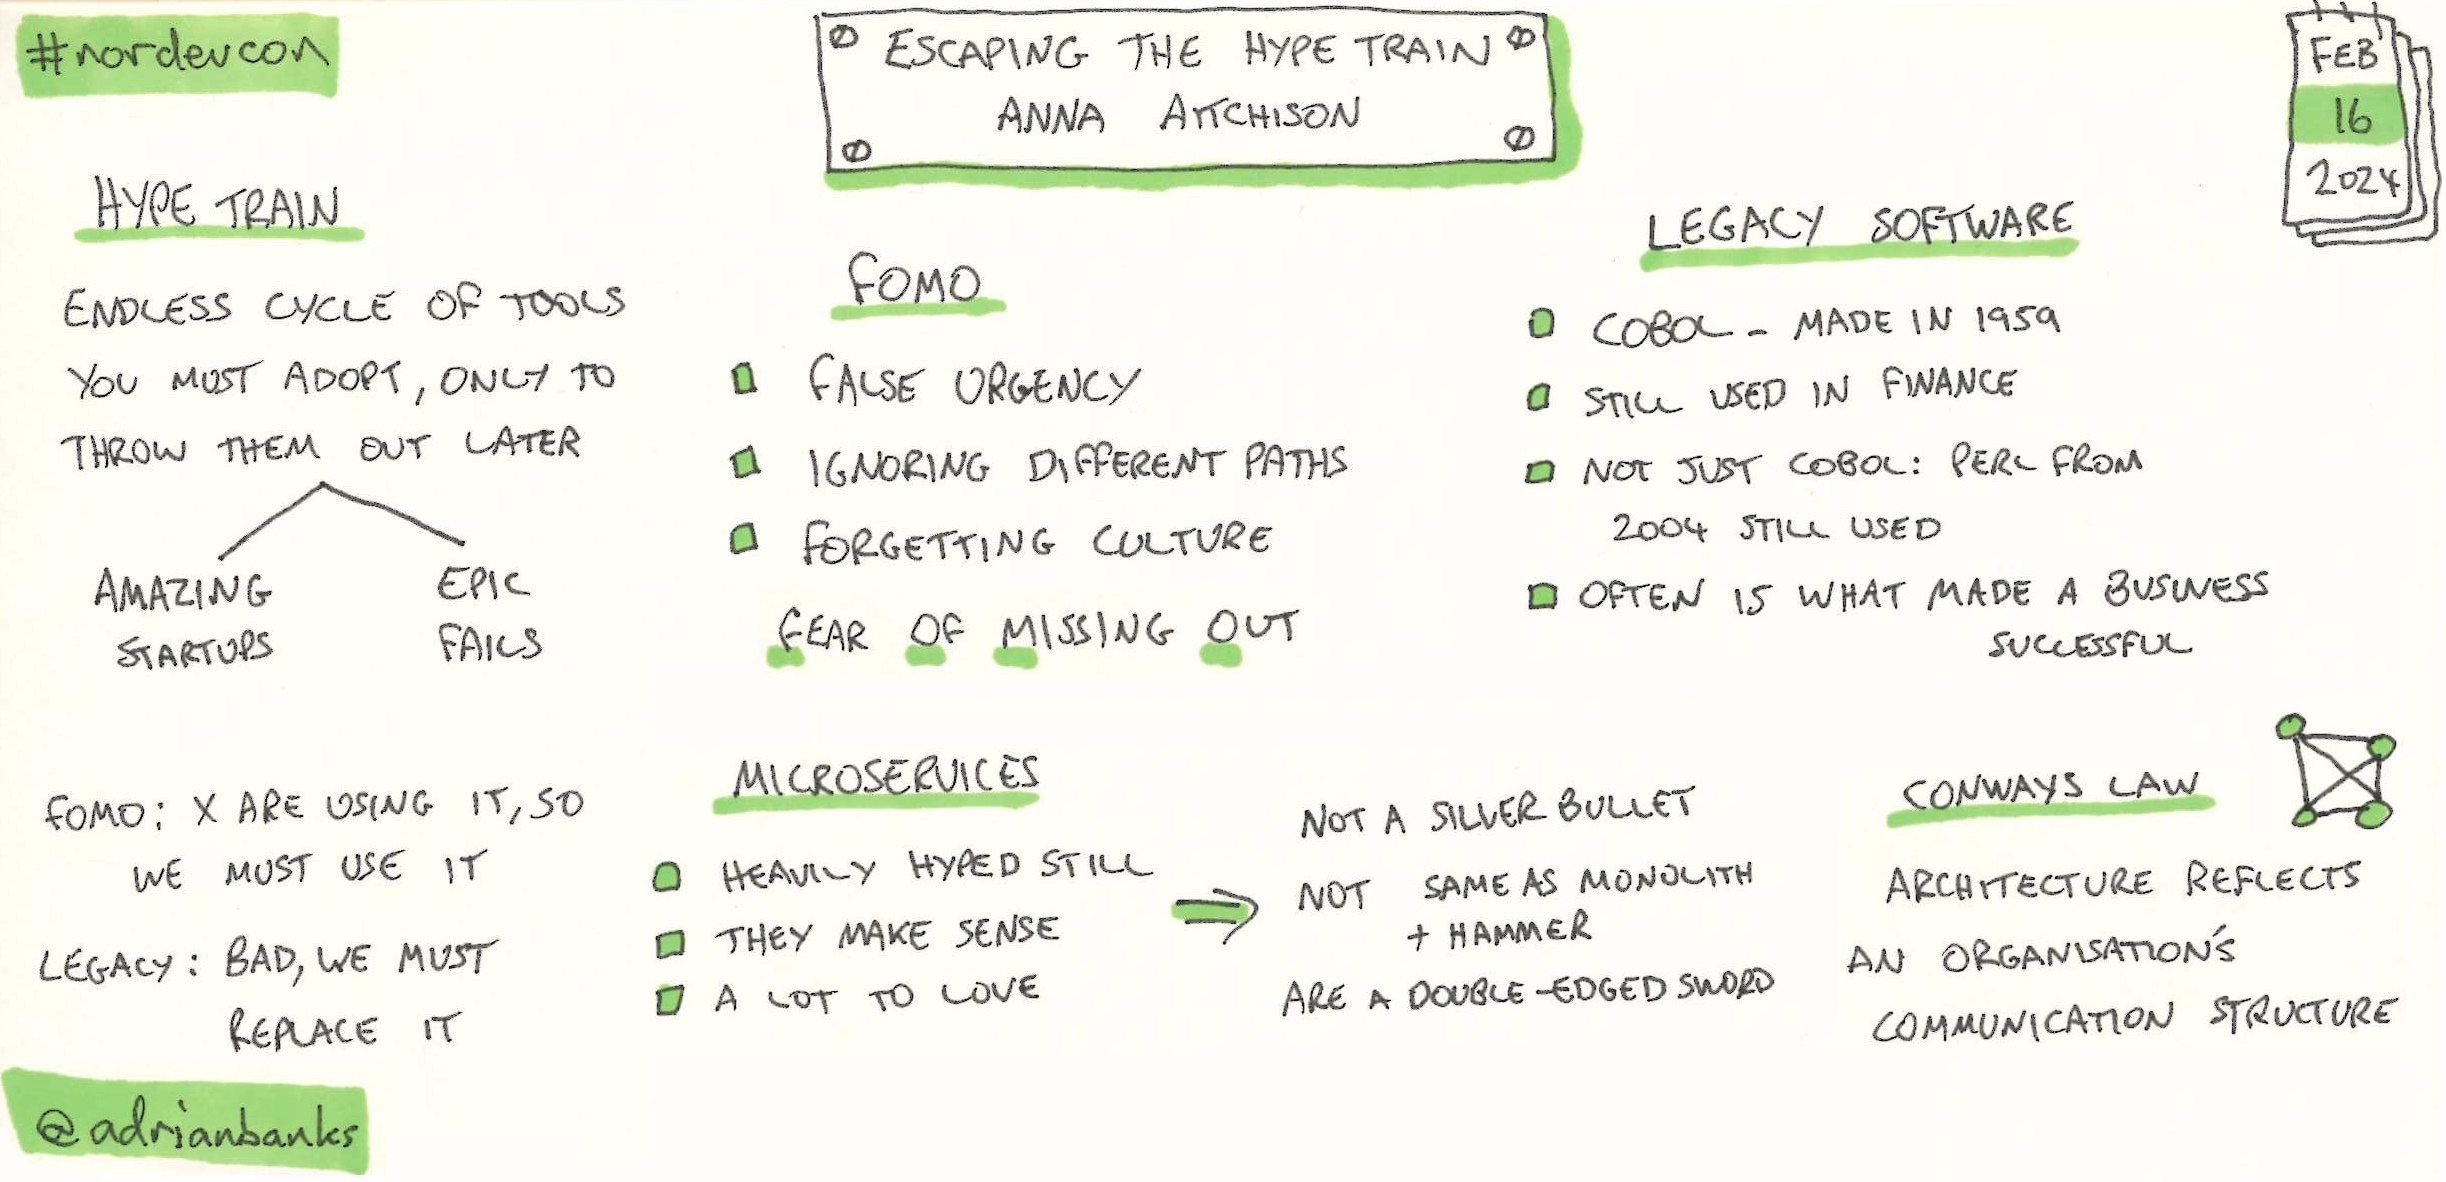 #nordevcon
ESCAPING THE HYPE TRAIN
ANNA AITCHISON
FEB
16
2024
HYPE TRAIN
ENDLESS CYCLE OF TOOLS
YOU MUST ADOPT, ONLY TO
THROW THEM OUT LATER
AMAZING
STARTUPS
EPIC
FAILS
FOMO
FALSE URGENCY
IGNORING DIFFERENT PATHS
FORGETTING CULTURE
FEAR OF MISSING OUT
LEGACY SOFTWARE
COBOL - MADE IN 1959
STILL USED IN FINANCE
NOT JUST COBOL: PERL FROM
2004 STILL USED
OFTEN IS WHAT MADE A BUSINESS
SUCCESSFUL
FOMO: X ARE USING IT, SO
WE MUST USE IT
LEGACY: BAD, WE MUST
REPLACE IT
MICROSERVICES
HEAVILY HYPED STILL
THEY MAKE SENSE
A LOT TO LOVE
NOT A SILVER BULLET
NOT SAME AS MONOLITH
+ HAMMER
ARE A DOUBLE-EDGED SWORD
CONWAYS LAW
ARCHITECTURE REFLECTS
AN ORGANISATION'S
COMMUNICATION STRUCTURE
@adrianbanks